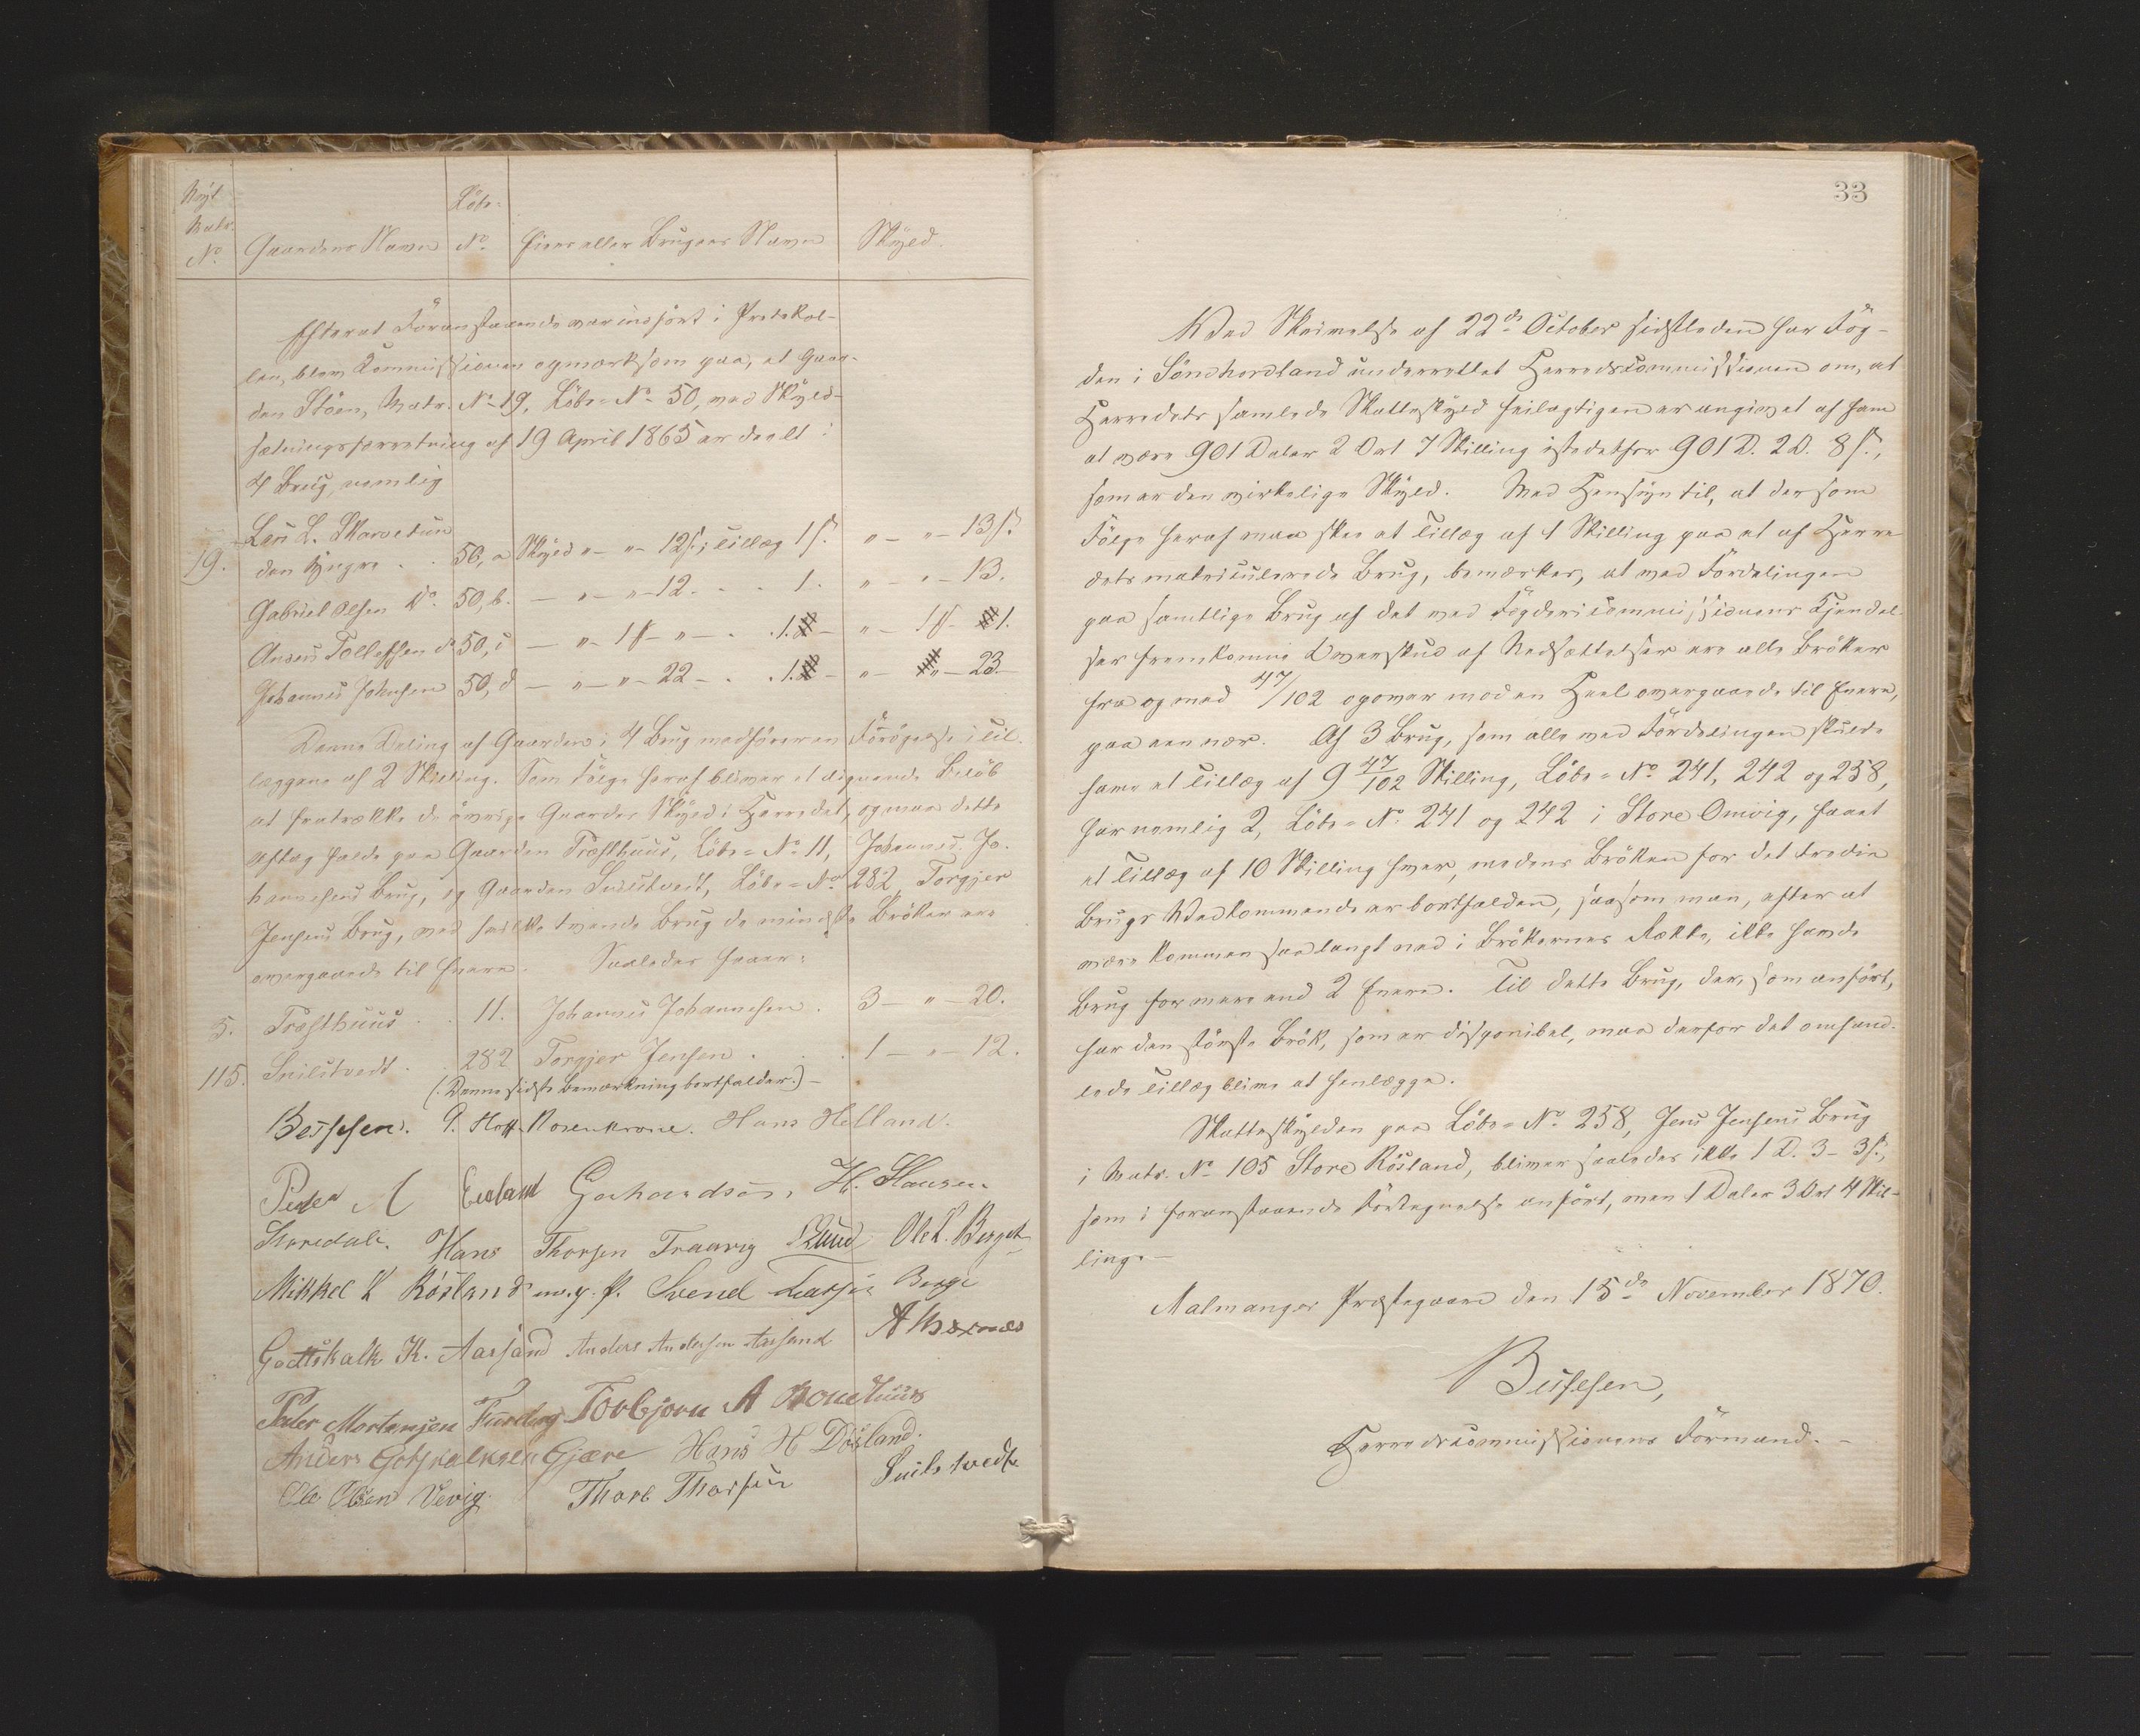 Nyt
Matr.
No
Gaardens Navn
Löbe-
No
Eiers eller Brugers Navn
Skyld.
Efterat Foranstaaende var indfört i Protokol-
len, blev Commissionen opmærksom paa, at Gaar-
den Stöen, Matr. No 19, Löbe-No 50, ved Skyld-
sætningsforretning af 19 April 1865 er deelt i
4 Brug, nemlig
19. Lars L. Skarvetun
den Yngre . . 50, a Skyld " - " - 12 ß; Tillæg 1 ß. " - " - 13 ß.
Gabriel Olsen do. 50, b. - " - " - 12 - . . 1. " - " - 13.
Anders Tollefsen do 50, c - " - 1 ß - " - . . 1. - " - 1 ß - 1.
Johannes Johnsen 50, d - " - " - 22 - . . 1. - " - " - 23 -
Denne Deling af Gaarden i 4 Brug medförer en Forögelse i Til-
læggene af 2 Skilling. Som Fölge heraf bliver et lignende Belöb
at fratrække de övrige Gaardes Skyld i Herredet, og maa dette
Aftag falde paa Gaarden Træsthuus, Löbe-No 11, Johannes Jo-
hannesens Brug, og Gaarden Sniltvedt, Löbe-No 282, Torgjer
Jensens Brug, ved hvilke tvende Brug de mindste Bröker ere
overgaaede til Enere. Saaledes haver:
5. Træsthuus . . 11. Johannes Johannesen . 3 - " - 20.
115. Sniltvedt . . 282 Torgjer Jensen . . . 1 - " - 12.
(: Denne sidste Bemærkning bortfalder :) -
P. Hoff-Rosenkrone. Hans Helland.
Peder Gerhardsen, H. Hansen
Hans Thorsen Ole L. Berget
Mikkel Rösland m.p.P. Svend Larsen Berge
Gottskalk K. Aarsand Anders Andersen Aarsand
Peder Mortensen Torbjörn A
Anders Gotskalksen Gjære Hans H Dösland.
Ole Olsen Thore Thorsen Sniltvedt
33
Ved Skrivelse af 22de October sidstleden har Fog-
den i Söndhordland underrettet Herredscommissionen om, at
Herredets samlede Matteskyld feilagtigen er angivet af ham
at være 901 Daler 2 Ort 7 Skilling istedetfor 901 D. 2 O. 8 ß.,
som er den virkelige Skyld. Med Hensyn til, at der som
Fölge heraf maa skee et Tillæg af 1 Skilling paa et af Herre-
dets matriculerede Brug, bemærkes, at ved Fordelingen
paa samtlige Brug af det ved Fogdericommissionens Kjendel-
ser fremkomne Overskud af Nedsættelser ere alle Bröker
fra og med 47/102 og over mod en Heel overgaaede til Enere,
paa een nær. Af 3 Brug, som alle ved Fordelingen skulde
have et Tillæg af 9 47/102 Skilling, Löbe-No 241, 242 og 258,
har nemlig 2, Löbe-No 241 og 242 i Store Omvig, faaet
et Tillæg af 10 Skilling hver, medens Bröken for det tredie
Brugs Vedkommende er bortfalden, saasom man, efter at
være kommen saa langt ned i Brökernes Række, ikke havde
Brug for mere end 2 Enere. Til dette Brug, der, som anfört,
har den störste Brök, som er disponibel, maa derfor det omhand-
lede Tillæg blive at henlægge.
Skatteskylden paa Löbe-No 258, Jens Jensens Brug
i Matr. No 105 Store Rösland, bliver saaledes ikke 1 D. 3 - 3 ß.,
som i foranstaaende Fortegnelse anfört, men 1 Daler 3 Ort 4 Skil-
ling. -
Malmanger Præstegaard den 15de November 1870.
Herredscommissionens Formand. -